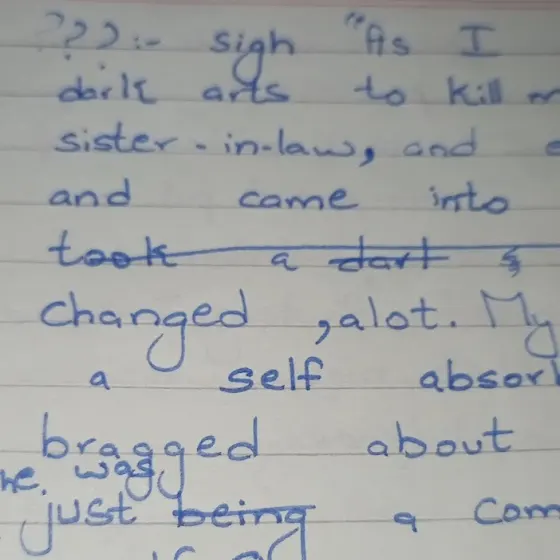 ???:- sigh "As I
dark arts to kill
sister-in-law, and
and came into
took a dart &
changed, alot. My
a self absor
bragged about
he. was
just being a com